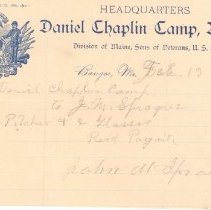 HEADQUARTERS
Daniel Chaplin Camp,
Division of Maine, Sons of Veterans, U. S.
Bangor, Me. Feb. 19
Daniel Chaplin Camp
to J. M. Sprague
Pitcher & 2 Glasses
Recd Payment
John M Spra